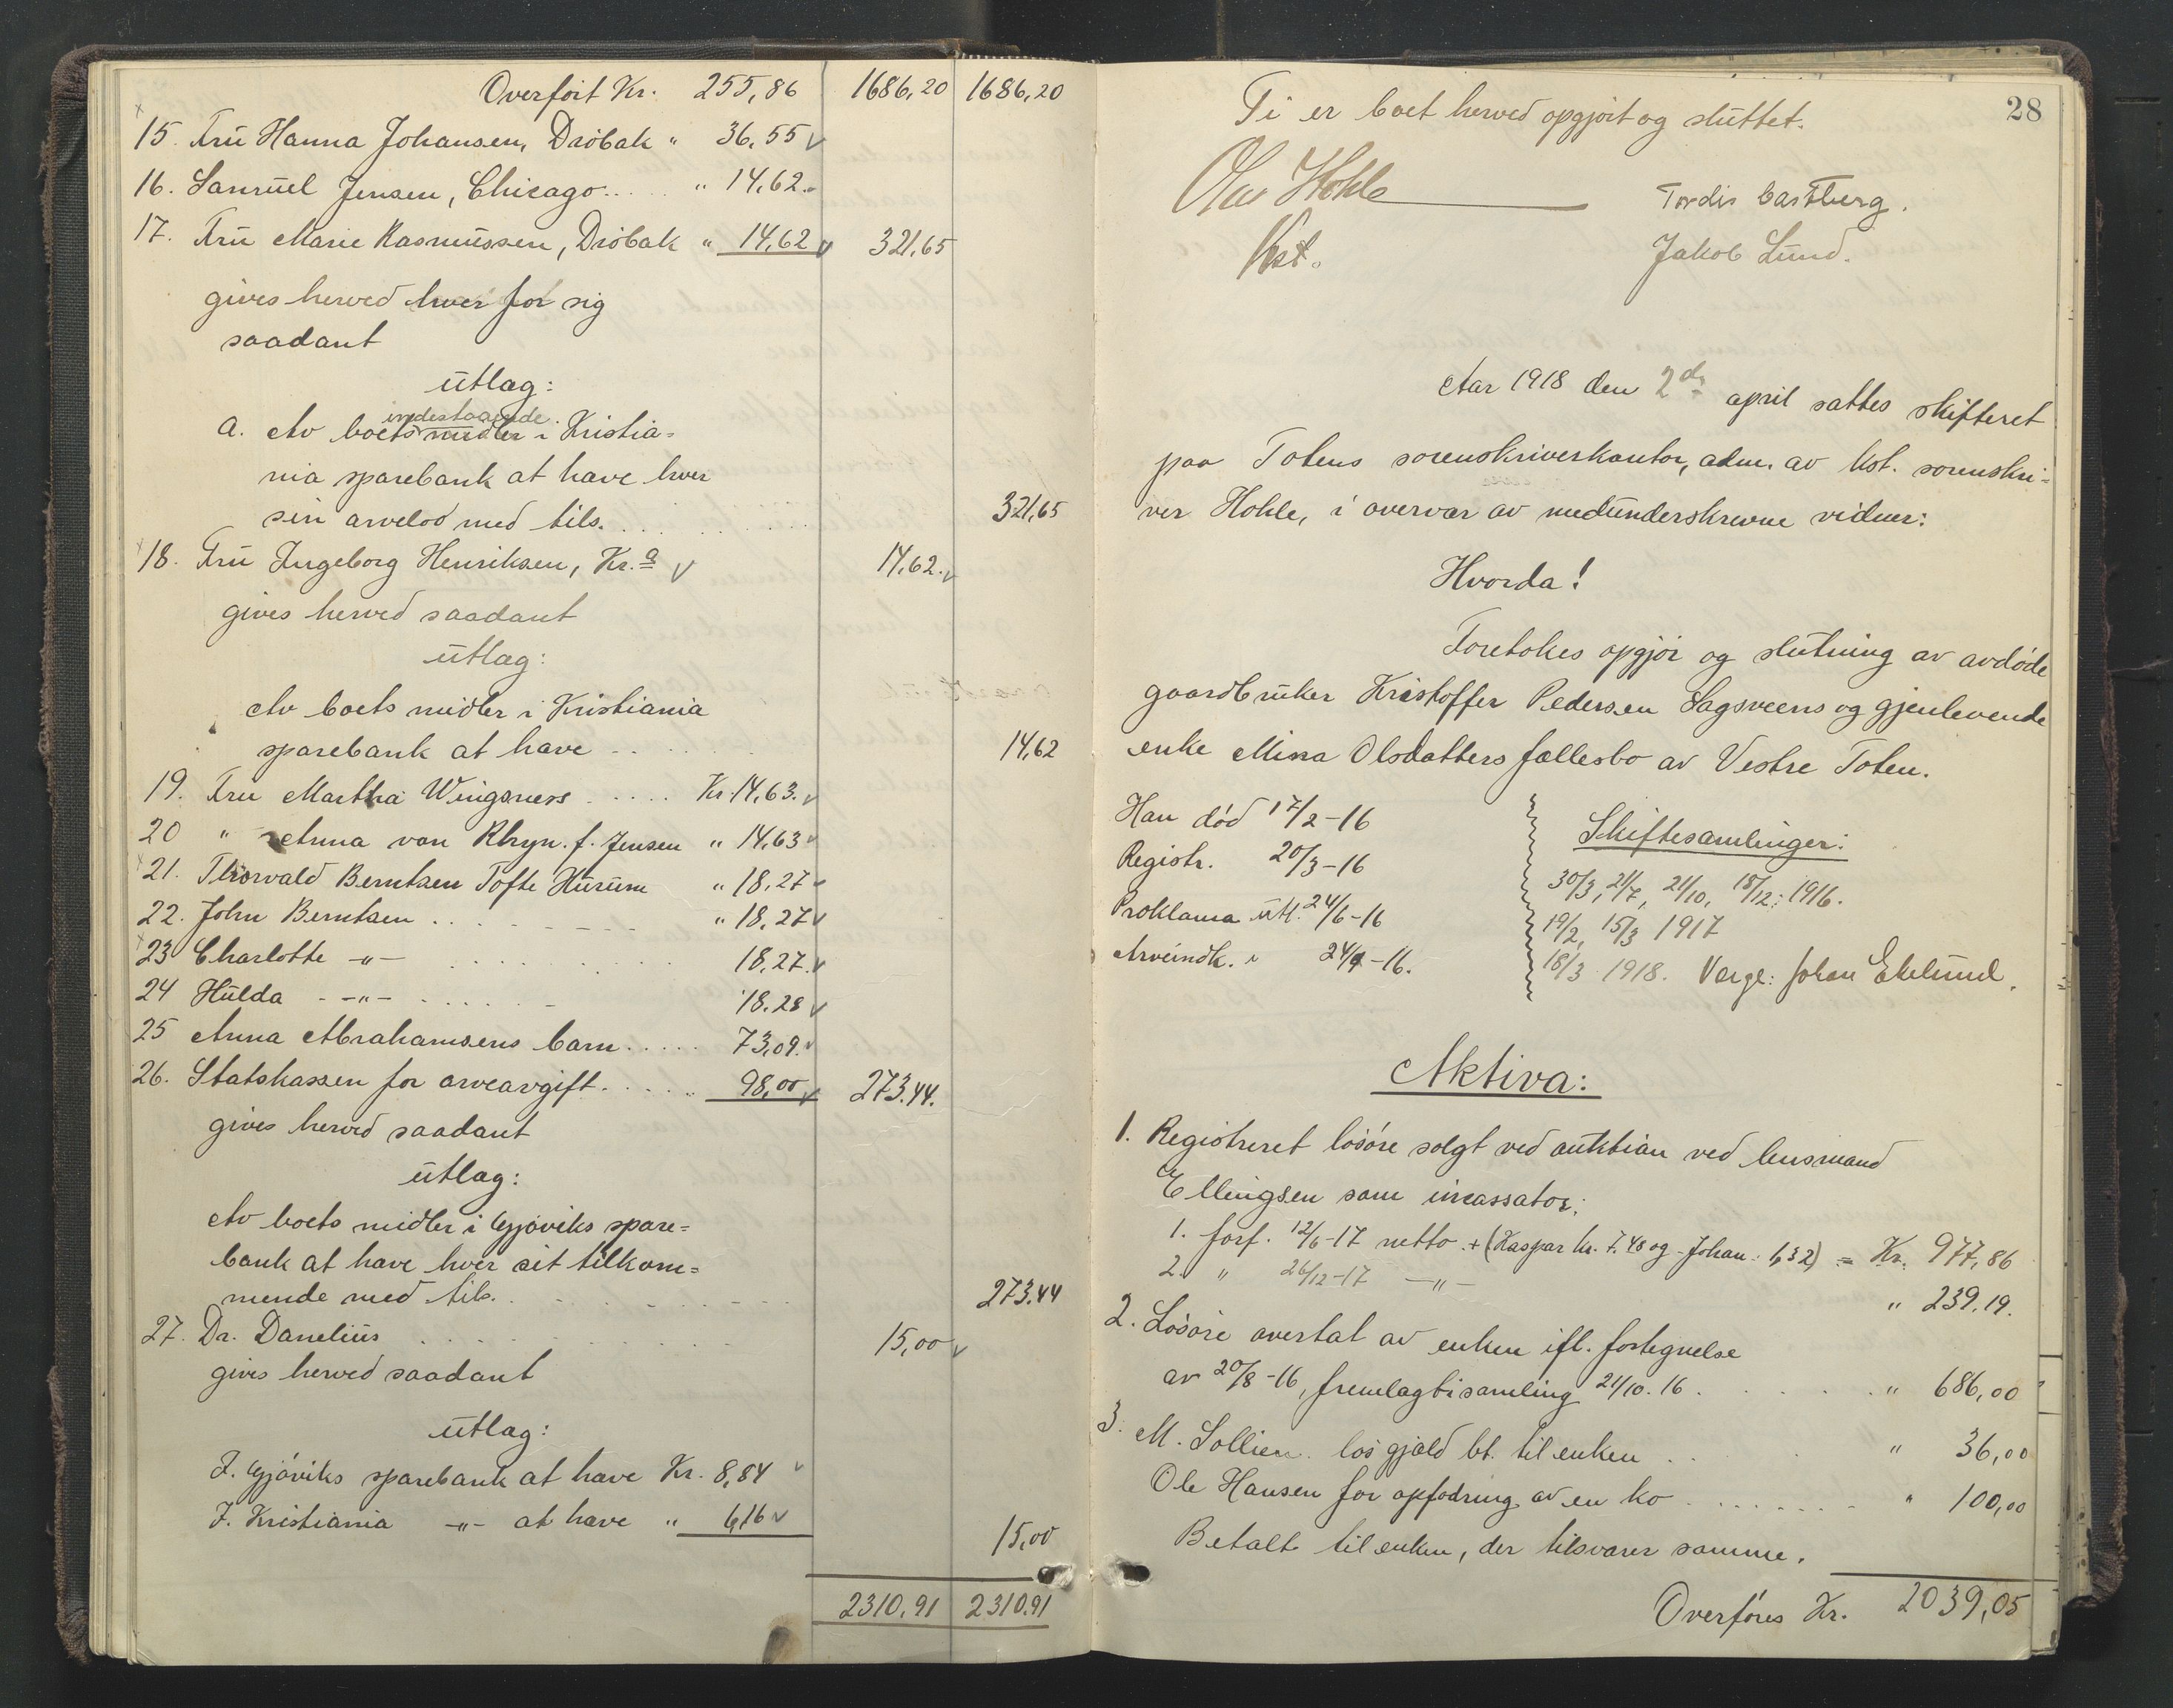 Overføit Kr. 255,86 1686,20 1686,20
15. Fru Hanna Johansen, Drøbak " 36,55
16. Samuel Jensen, Chicago.... " 14,62
17. Fru Marie Rasmussen, Drøbak " 14,62 321,65
gives herved hver for sig
saadant
utlæg:
indestaaende
a. Av boets midler i Kristia=
nia sparebank at have hver
sin arvelod med tils. 321,65
18. Fru Ingeborg Henriksen, Kr.a 14,62.
gives herved saadant
utlæg:
Av boets midler i Kristiania
sparebank at have 14,62
19. Fru Martha Wingsness ..... Kr. 14,63.
20 " Anna van Rhyn. f. Jensen " 14,63
21. Thorvald Berntsen Tofte Hurum " 18,27
22. John Berntsen " 18,27
23 Charlotte -"- 18,27.
24 Hulda -"- 18,28
25 Anna Abrahamsens barn..... 73,09.
26. Statskassen for arveavgift..... 98,00 273.44.
gives herved saadant
utlæg:
Av boets midler i Gjøviks spare=
bank at have hver sit tilkom=
mende med tils. 273.44
27. Dr. Danelius 15,00
gives herved saadant
utlæg:
I. Gjøviks sparebank at have Kr. 8,84
I. Kristiania -"- at have " 6,16
15,00
2310,91 2310.91
28
Ti er boet herved opgjort og sluttet.
Olav Hohle Tordis Castberg.
Kst. Jakob Lund.
Aar 1918 den 2den april sattes skifteret
paa Totens sorenskriverkontor, adm. av kst. sorenskri=
ver Hohle, i overvær av medunderskrevne vidner:
Hvorda!
Foretokes opgjør og slutning av avdøde
gaardbruker Kristoffer Pedersen Sagsveens og gjenlevende
enke Mina Olsdatters fællesbo av Vestre Toten.
Han død 17/2-16
Registr. 20/3-16
Proklama utl. 24/6-16
Arveindk. i 24/9-16.
Skiftesamlinger:
30/3, 21/7, 21/10, 18/12: 1916.
19/2, 15/3 1917
18/3 1918. Værge: Johan Ekelund.
Aktiva:
1. Registreret løsøre solgt ved auktion ved lensmand
Ellingsen som incassator:
1. forf. 12/6-17 netto + (Kaspar kr. 7.48 og Johan: 1,32) = Kr. 977,86
2. " 26/12-17 -"- " 239.19.
2. Løsøre overtat av enken ifl. fortegnelse
av 20/8-16, fremlagt i samling 21/10.16. " 686,00
3. M. Sollien. løsgjæld bt. til enken .. " 36,00
Ole Hansen for opfodring av en ko " 100,00
Betalt til enken, der tilsvarer samme.
Overføres Kr. 2039,05